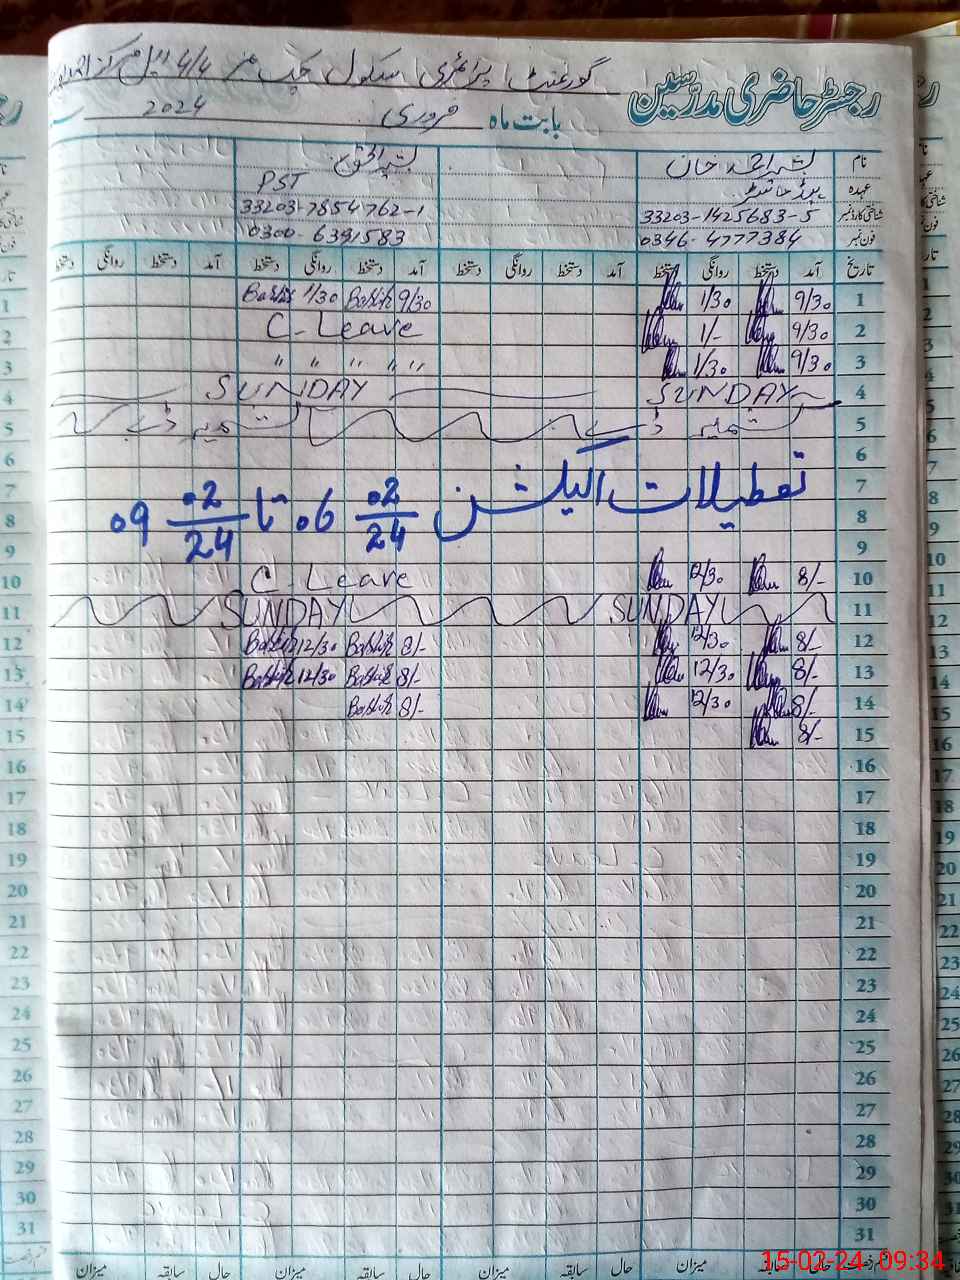 رجسٹر حاضری مدرسین
گورنمنٹ پرائمری سکول چک نمبر 4/4
بابت ماہ فروری 2024
نام بشیر احمد خان بشیر الحق
عہدہ ہیڈ ماسٹر PST
شناختی کارڈ نمبر 33203-1425683-5 33203-7854762-1
فون نمبر 0346-4777384 0300-6391583
تاریخ آمد دستخط روانگی دستخط آمد دستخط روانگی دستخط آمد دستخط روانگی دستخط آمد دستخط روانگی دستخط
1 9/30 1/30 9/30 Bashir 1/30 Bashir
2 9/30 1/- C-Leave
3 9/30 1/30 " " " " "
4 SUNDAY SUNDAY
5 کشمیر ڈے کشمیر ڈے
6
7 تعطیلات الیکشن 06 02/24 تا 09 02/24
8
9
10 8/- 12/30 C-Leave
11 SUNDAY SUNDAY
12 8/- 12/30 8/- Bashir 12/30 Bashir
13 8/- 12/30 8/- Bashir 12/30 Bashir
14 8/- 12/30 8/- Bashir
15 8/-
16
17
18
19
20
21
22
23
24
25
26
27
28
29
30
31
حال سابقہ میزان حال سابقہ میزان حال سابقہ میزان
15-02-24 09:34